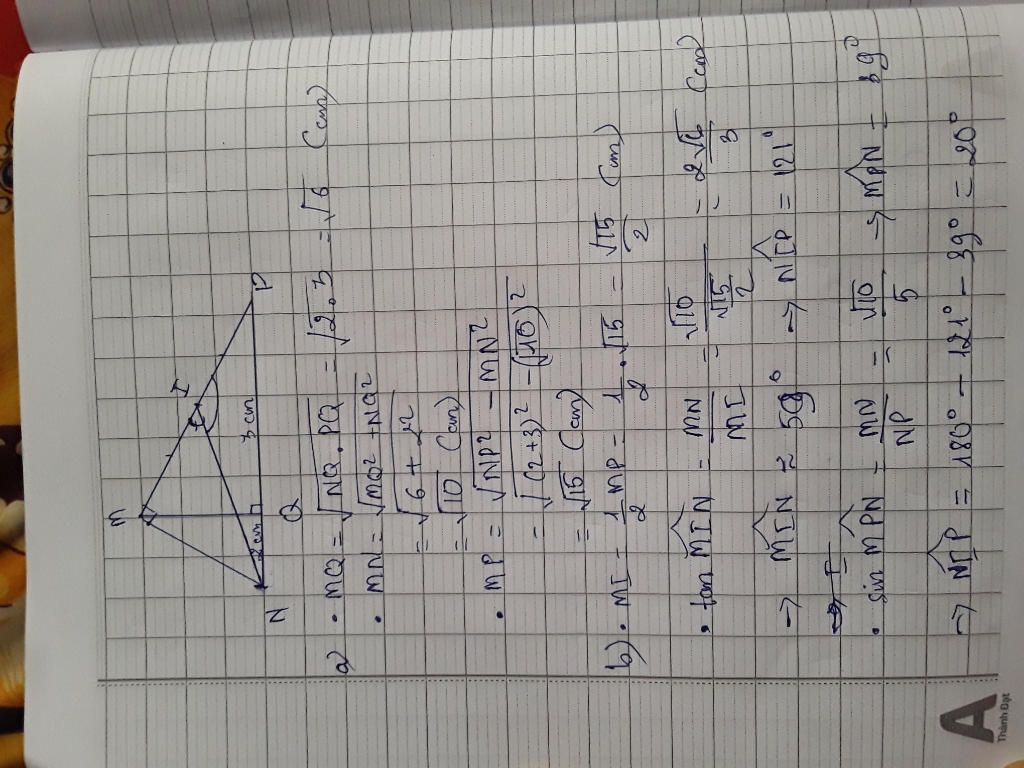 M
I
N
2cm
Q
3cm
P
a) • MQ = √NQ.PQ = √2.3 = √6 (cm)
• MN = √MQ² + NQ²
= √6 + 2²
= √10 (cm)
• MP = √NP² - MN²
= √(2+3)² - (√10)²
= √15 (cm)
b) • MI = 1/2 MP = 1/2 . √15 = √15/2 (cm)
• tan MIN = MN/MI = √10/(√15/2) = 2√6/3 (cm)
→ MIN = 59° → NIP = 121°
• sin MPN = MN/NP = √10/5 → MPN = 39°
→ NIP = 180° - 121° - 39° = 20°
A
Thành Đạt